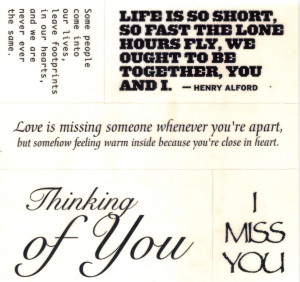 Some people
come into
our lives,
leave footprints
in our hearts,
and we are
never ever
the same.
LIFE IS SO SHORT,
SO FAST THE LONE
HOURS FLY, WE
OUGHT TO BE
TOGETHER, YOU
AND I. — HENRY ALFORD
Love is missing someone whenever you're apart,
but somehow feeling warm inside because you're close in heart.
Thinking
of You
I
MISS
YOU